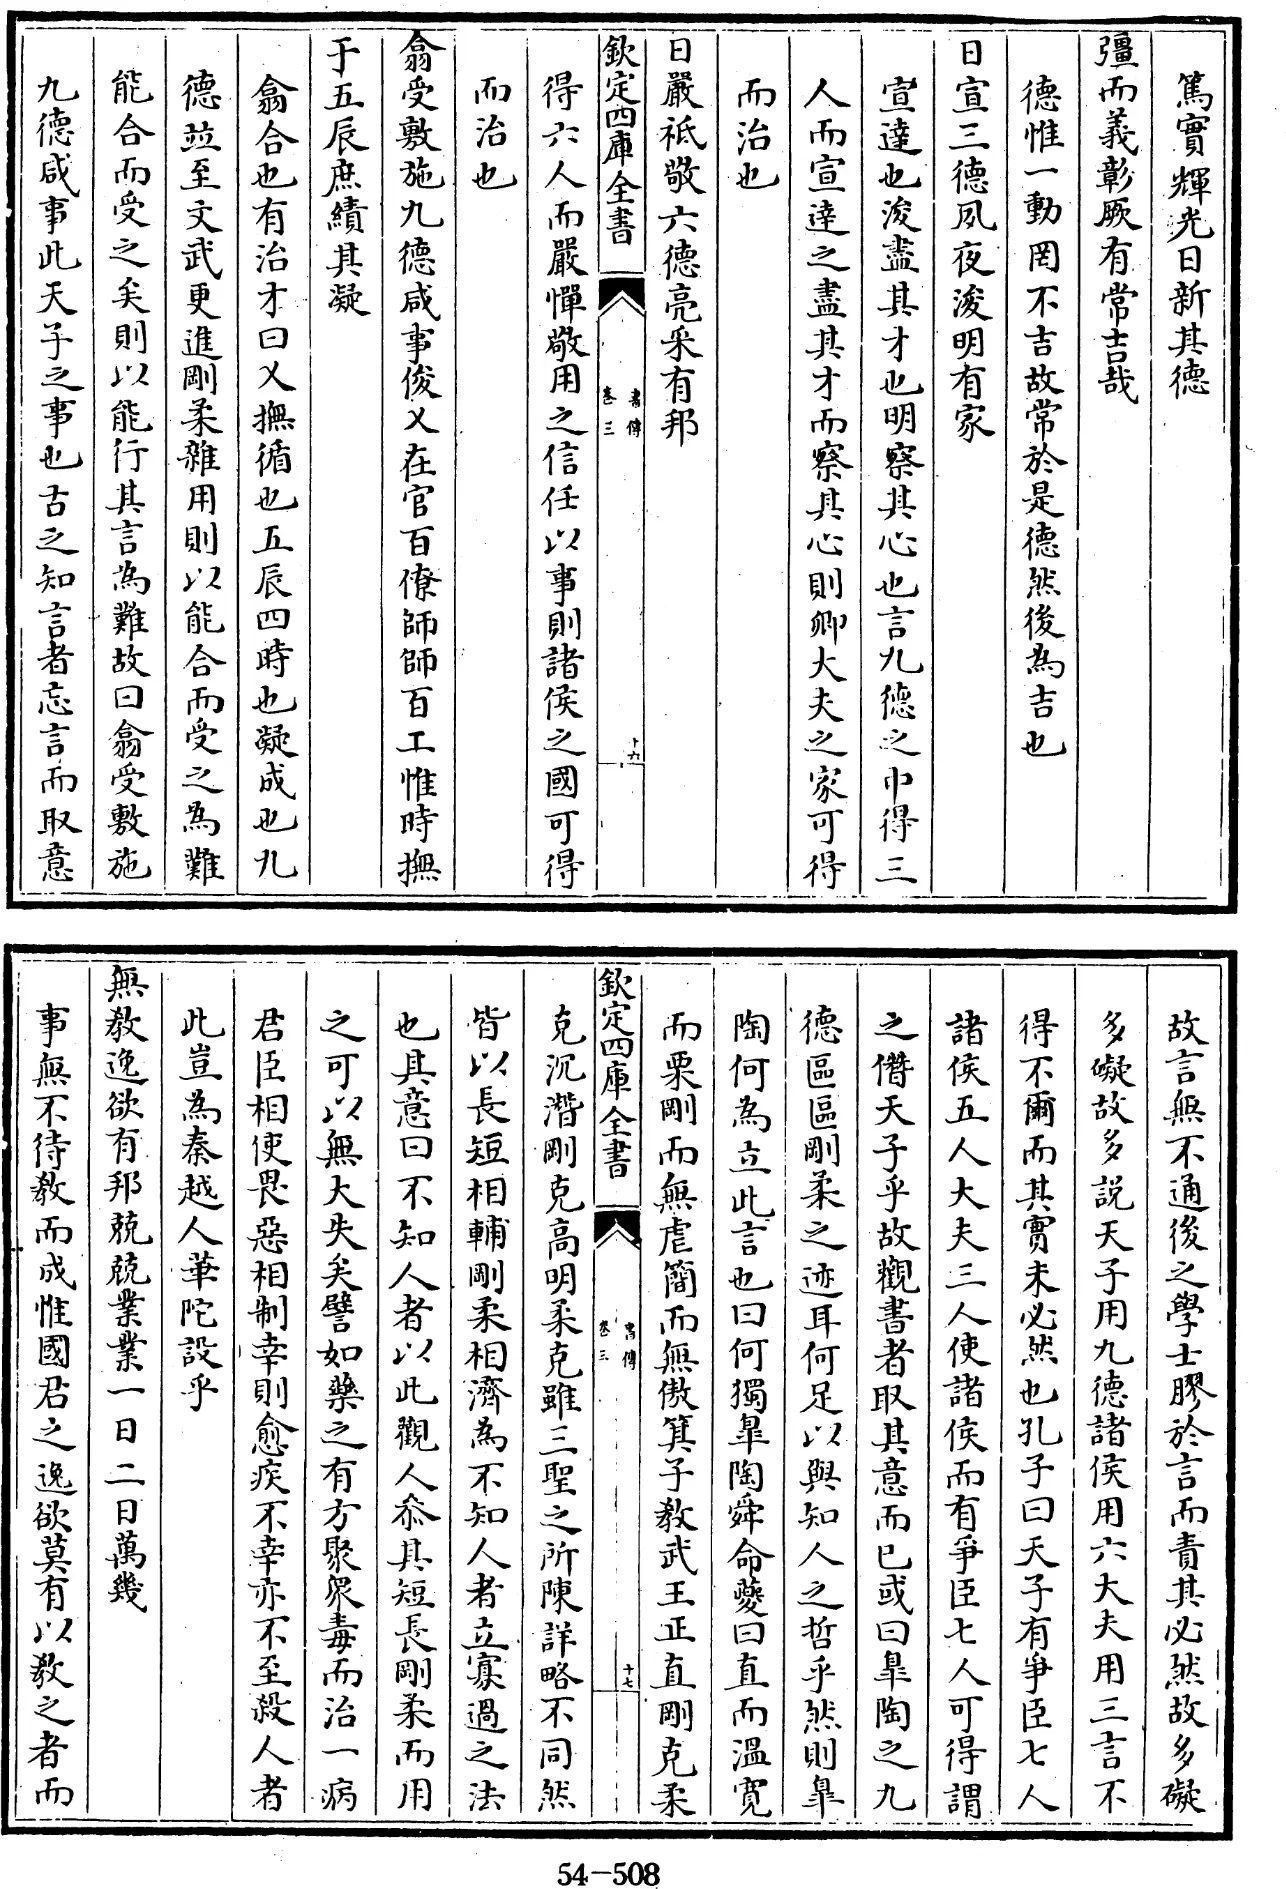 篤實輝光日新其德
彊而義彰厥有常吉哉
德惟一動罔不吉故常於是德然後為吉也
日宣三德夙夜浚明有家
宣達也浚盡其才也明察其心也言九德之中得三
人而宣達之盡其才而察其心則卿大夫之家可得
而治也
日嚴祗敬六德亮采有邦
欽定四庫全書
書傳
卷三
十六
得六人而嚴憚敬用之信任以事則諸侯之國可得
而治也
翕受敷施九德咸事俊乂在官百僚師師百工惟時撫
于五辰庶績其凝
翕合也有治才曰乂撫循也五辰四時也凝成也九
德並至文武更進剛柔雜用則以能合而受之為難
能合而受之矣則以能行其言為難故曰翕受敷施
九德咸事此天子之事也古之知言者忘言而取意
故言無不通後之學士膠於言而責其必然故多礙
多礙故多說天子用九德諸侯用六大夫用三言不
得不爾而其實未必然也孔子曰天子有爭臣七人
諸侯五人大夫三人使諸侯而有爭臣七人可得謂
之僭天子乎故觀書者取其意而已或曰臯陶之九
德區區剛柔之迹耳何足以與知人之哲乎然則臯
陶何為立此言也曰何獨臯陶舜命夔曰直而溫寬
而栗剛而無虐簡而無傲箕子教武王正直剛克柔
欽定四庫全書
書傳
卷三
十七
克沉潛剛克高明柔克雖三聖之所陳詳略不同然
皆以長短相輔剛柔相濟為不知人者立寡過之法
也其意曰不知人者以此觀人叅其短長剛柔而用
之可以無大失矣譬如藥之有方聚眾毒而治一病
君臣相使畏惡相制幸則愈疾不幸亦不至殺人者
此豈為秦越人華陀設乎
無教逸欲有邦兢兢業業一日二日萬幾
事無不待教而成惟國君之逸欲莫有以教之者而
54-508